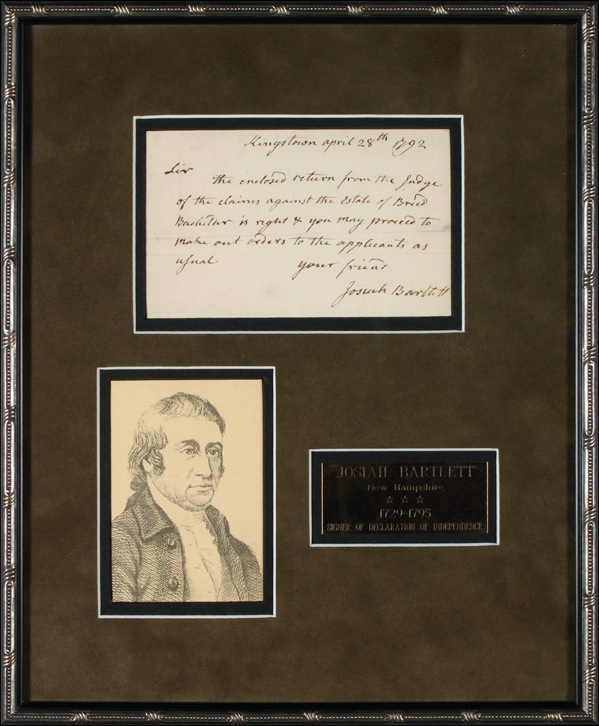 Kingstown april 28th 1792
Sir
the enclosed return from the Judge
of the claims against the Estate of Breed
is right & you may proceed to
make out orders to the applicants as
usual your friend
Josiah Bartlett
"JOSIAH BARTLETT"
New Hampshire
☆ ☆ ☆
1729-1795
SIGNER OF DECLARATION OF INDEPENDENCE